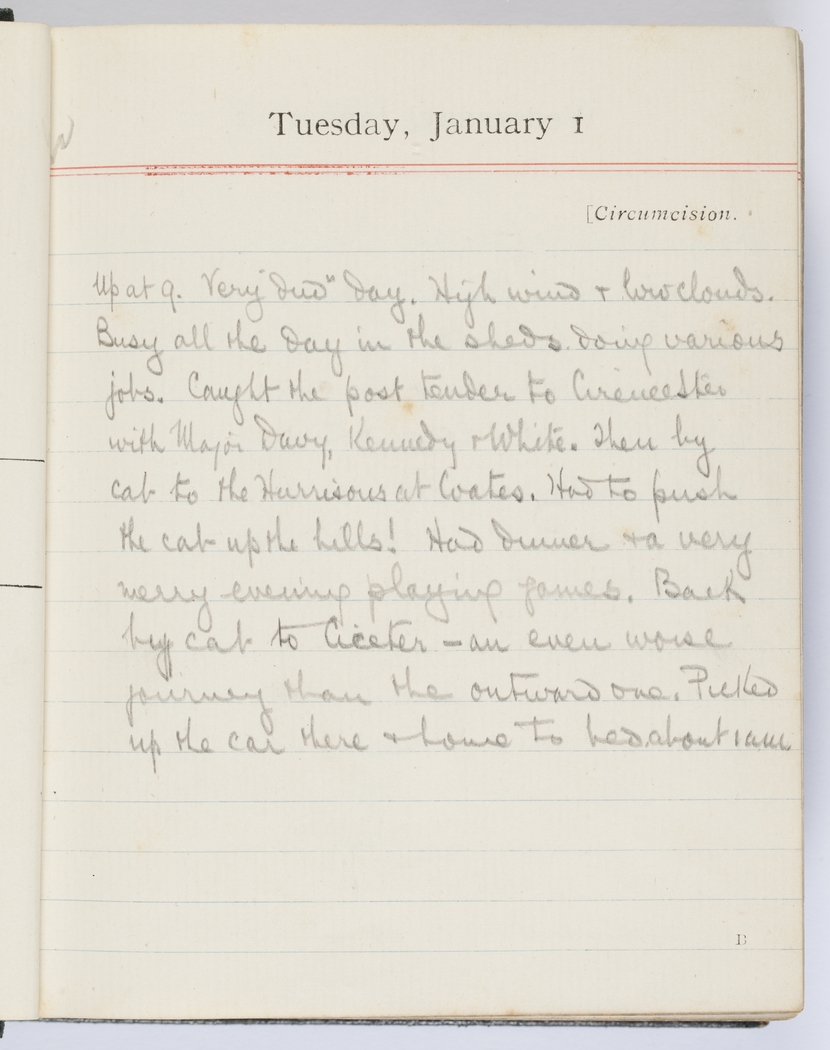 Tuesday, January 1
[Circumcision.
Up at 9. Very "dud" day. High wind + low clouds.
Busy all the day in the sheds doing various
jobs. Caught the post tender to Cirencester
with Major Davy, Kennedy + White. Then by
cab to the Harrisons at Coates. Had to push
the cab up the hills! Had dinner + a very
merry evening playing games. Back
by cab to Ciceter – an even worse
journey than the outward one. Picked
up the car there + home to bed about 1 am
B